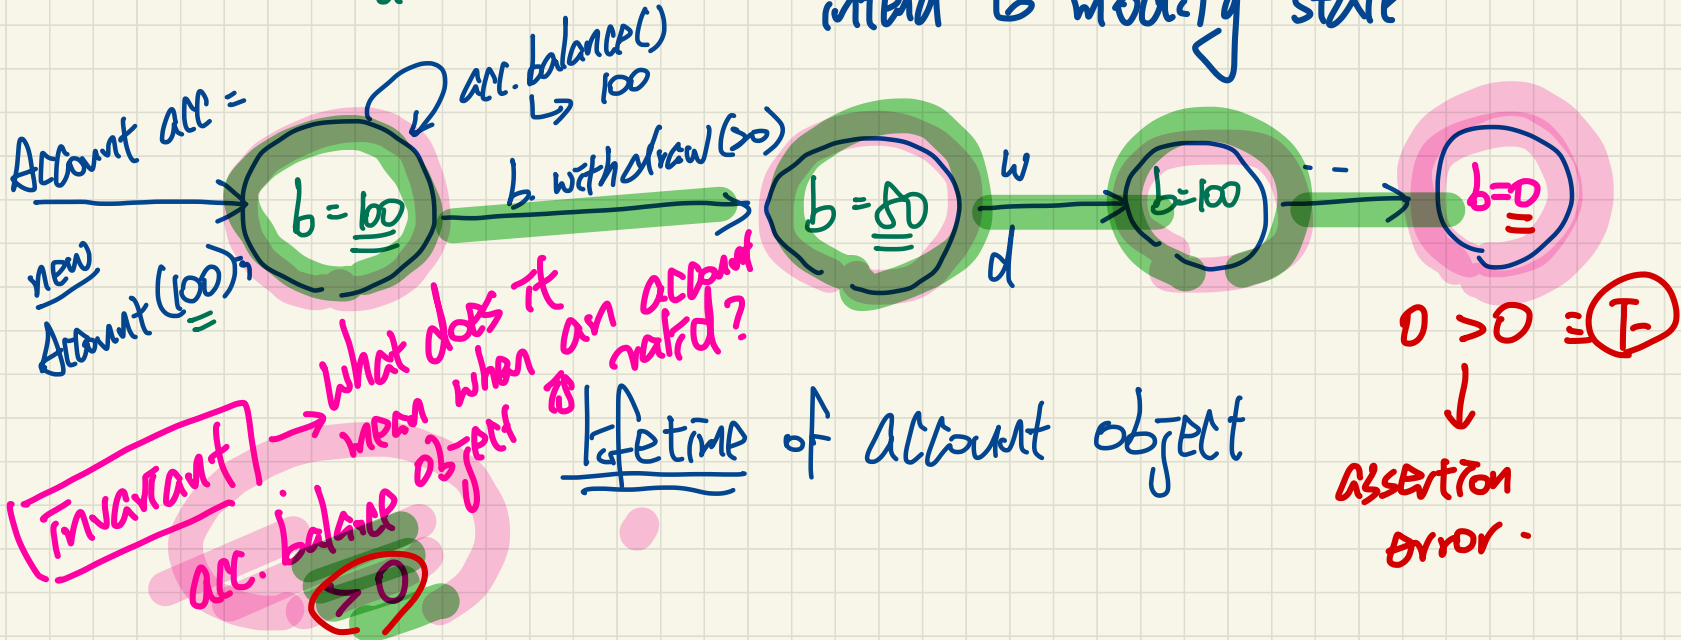 intend to modify state
acc.balance()
↳ 100
Account acc =
new
Account(100);
b = 100
b. withdraw(50)
b = 50
w
d
b=100
- -
b=0
0 > 0 ≡ F
↓
assertion
error.
invariant → what does it
mean when an account
object is valid?
acc. balance
> 0
lifetime of account object